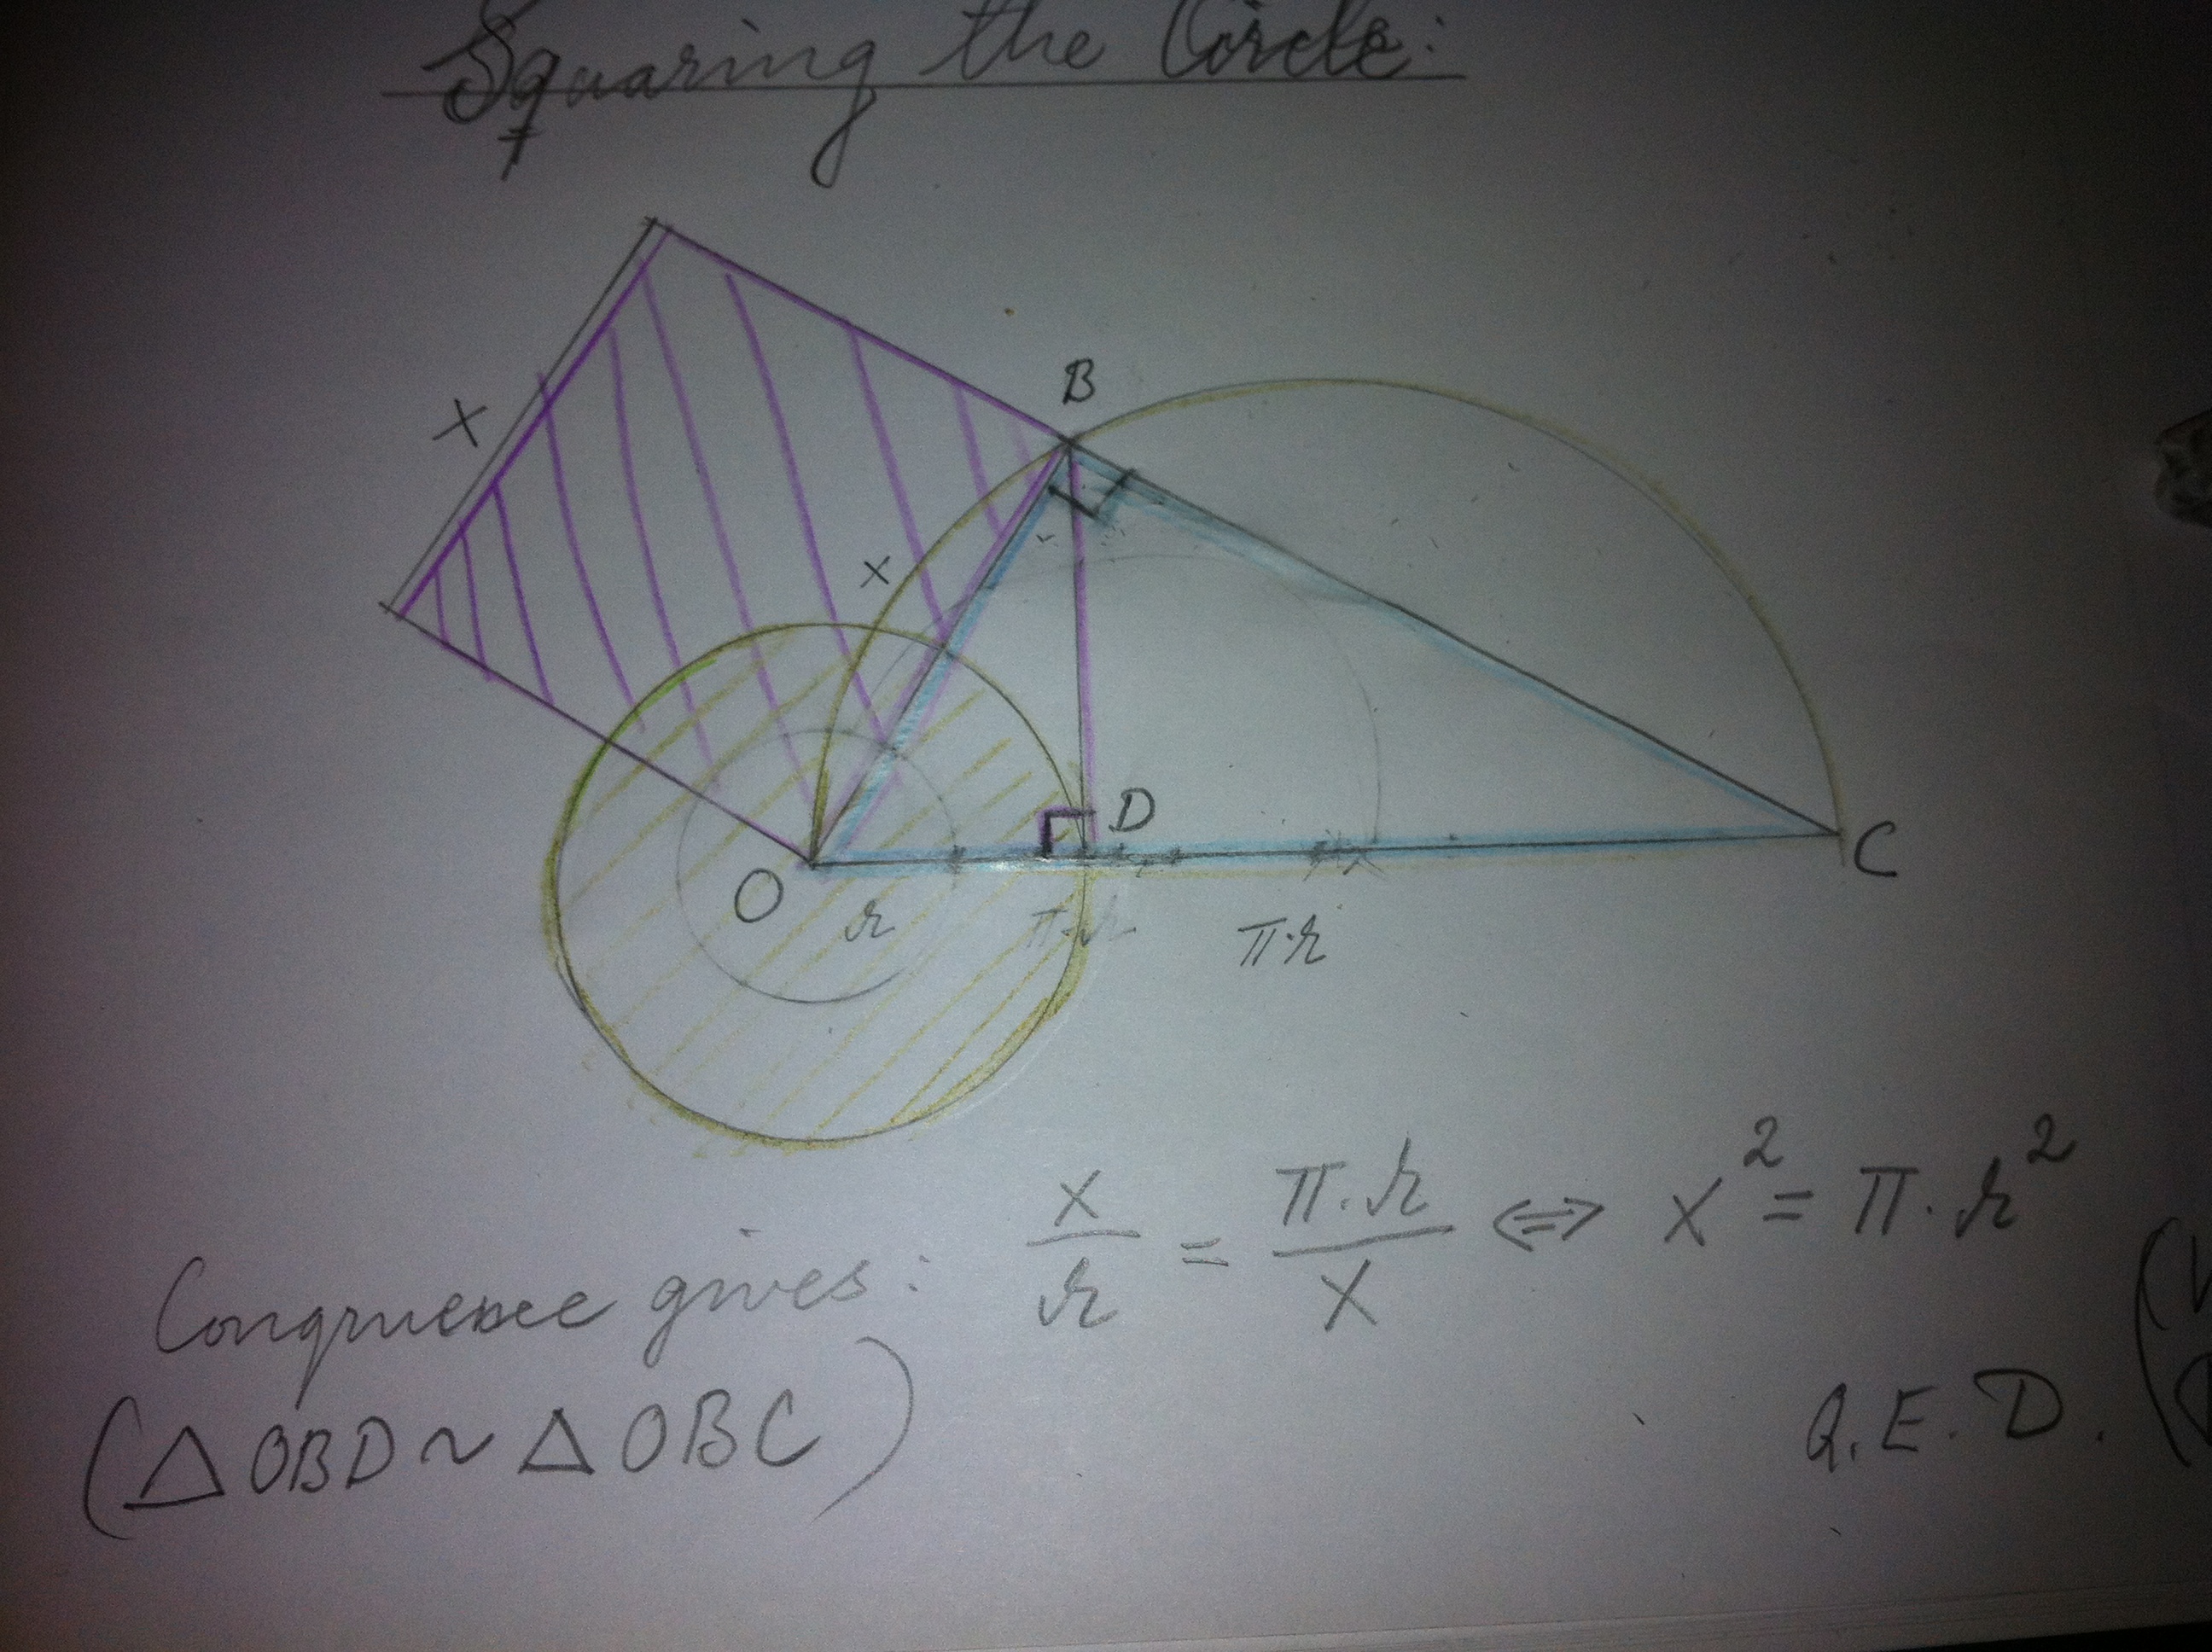 Squaring the Circle:
B
X
x
D
O
C
r
π·r
π·r
Congruence gives: x/r = π·r/X ⇔ x² = π·r²
(△OBD ~ △OBC)
Q.E.D.